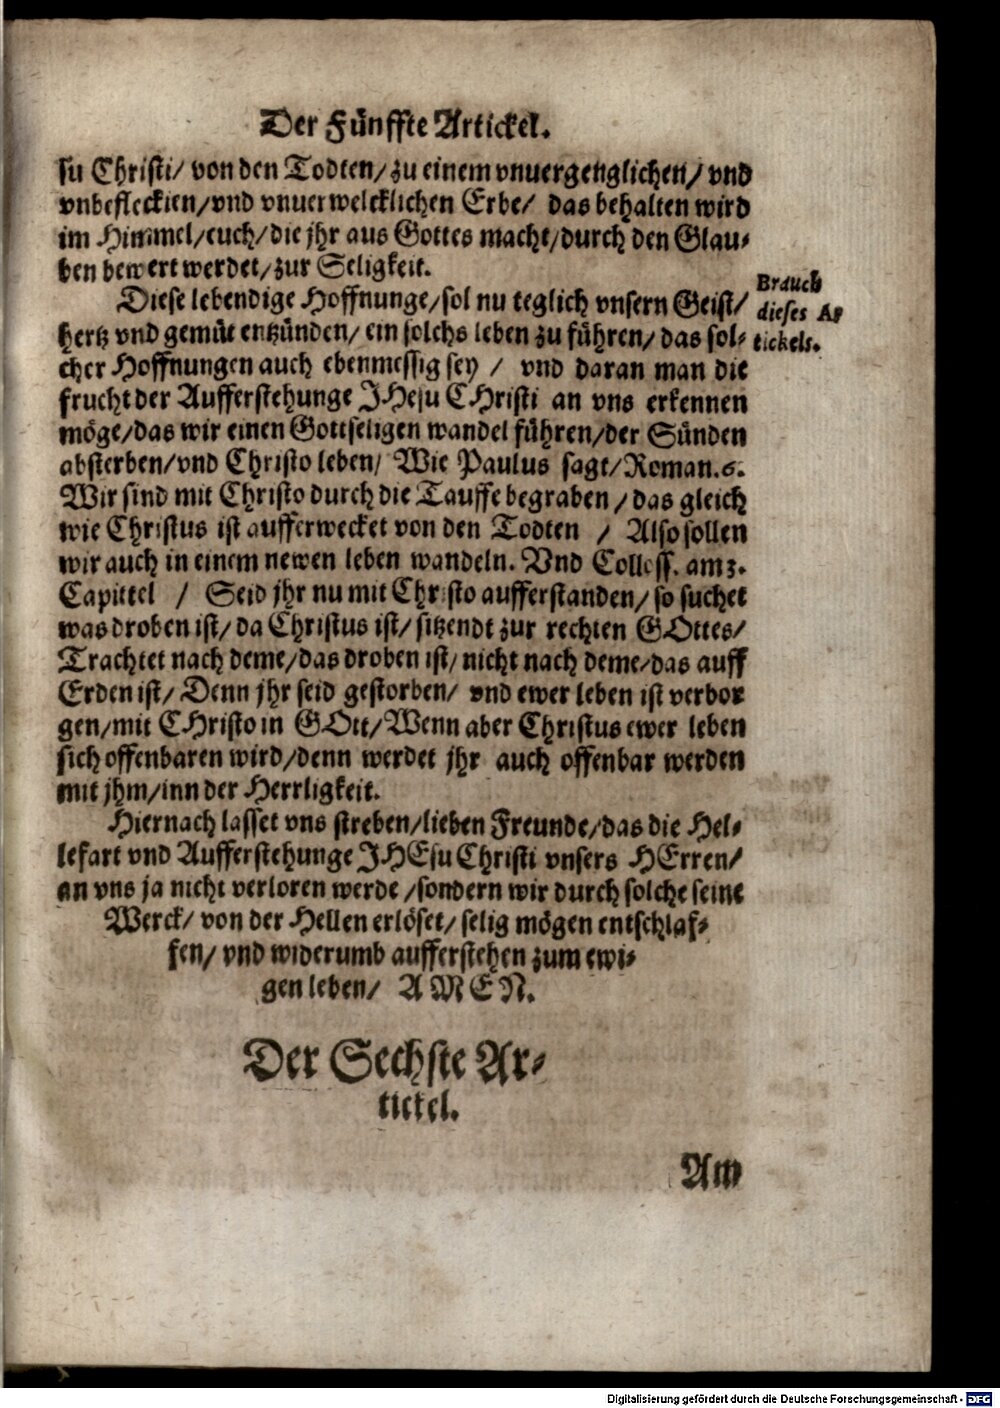 Der Fünffte Artickel.
su Christi/ von den Todten/ zu einem vnuergenglichen/ vnd
vnbefleckten/ vnd vnuerwelcklichen Erbe/ das behalten wird
im Himmel/ euch/ die jhr aus Gottes macht/ durch den Glau-
ben bewert werdet/ zur Seligkeit.
Diese lebendige Hoffnunge/ sol nu teglich vnsern Geist/
hertz vnd gemüt entzünden/ ein solchs leben zu führen/ das sol-
cher Hoffnungen auch ebenmessig sey / vnd daran man die
frucht der Aufferstehunge JHesu CHristi an vns erkennen
möge/ das wir einen Gottseligen wandel führen/ der Sünden
absterben/ vnd Christo leben/ Wie Paulus sagt/ Roman. 6.
Wir sind mit Christo durch die Tauffe begraben / das gleich
wie Christus ist aufferwecket von den Todten / Also sollen
wir auch in einem newen leben wandeln. Vnd Coloss. am 3.
Capittel / Seid jhr nu mit Christo aufferstanden/ so suchet
was droben ist/ da Christus ist/ sitzendt zur rechten GOttes/
Trachtet nach deme/ das droben ist/ nicht nach deme/ das auff
Erden ist/ Denn jhr seid gestorben/ vnd ewer leben ist verbor
gen/ mit CHristo in GOtt/ Wenn aber Christus ewer leben
sich offenbaren wird/ denn werdet jhr auch offenbar werden
mit jhm/ inn der Herrligkeit.
Hiernach lasset vns streben/ lieben Freunde/ das die Hel-
lefart vnd Aufferstehunge JHEsu Christi vnsers HErren/
an vns ja nicht verloren werde / sondern wir durch solche seine
Werck/ von der Hellen erlöset/ selig mögen entschlaf-
fen/ vnd widerumb aufferstehen zum ewi-
gen leben/ A M E N.
Brauch
dieses Ar
tickels.
Der Sechste Ar-
tickel.
Am
Digitalisierung gefördert durch die Deutsche Forschungsgemeinschaft - DFG